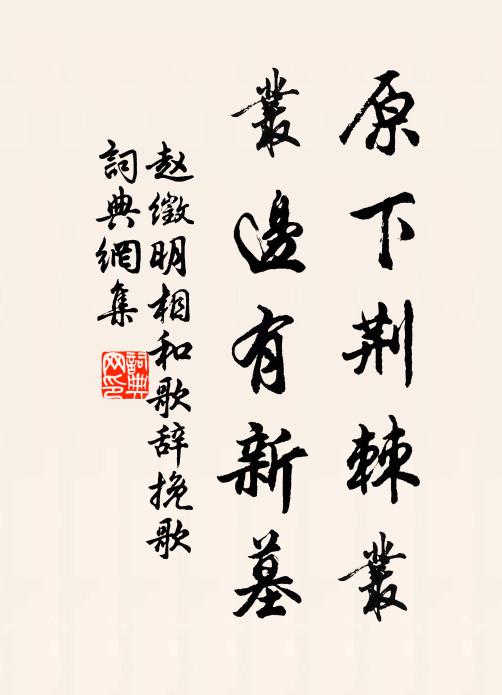 原下荆棘叢
叢邊有新墓
赵徵明相和歌辞挽歌
詞典網集
詞典网印